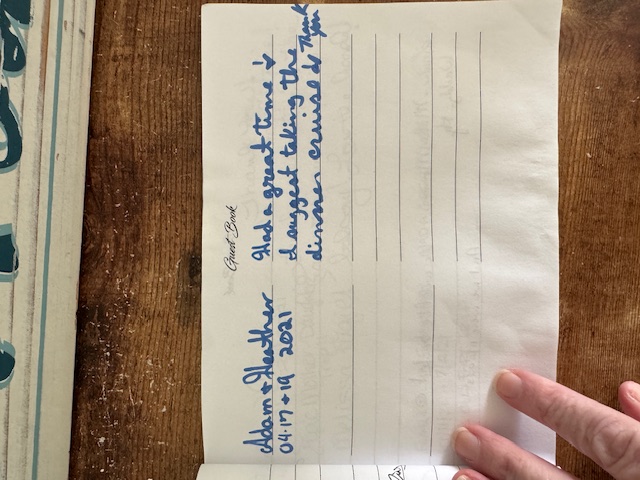 Guest Book
Adam + Heather
04.17+19 2021
Had a great time &
I suggest taking the
dinner cruise
Thank
you